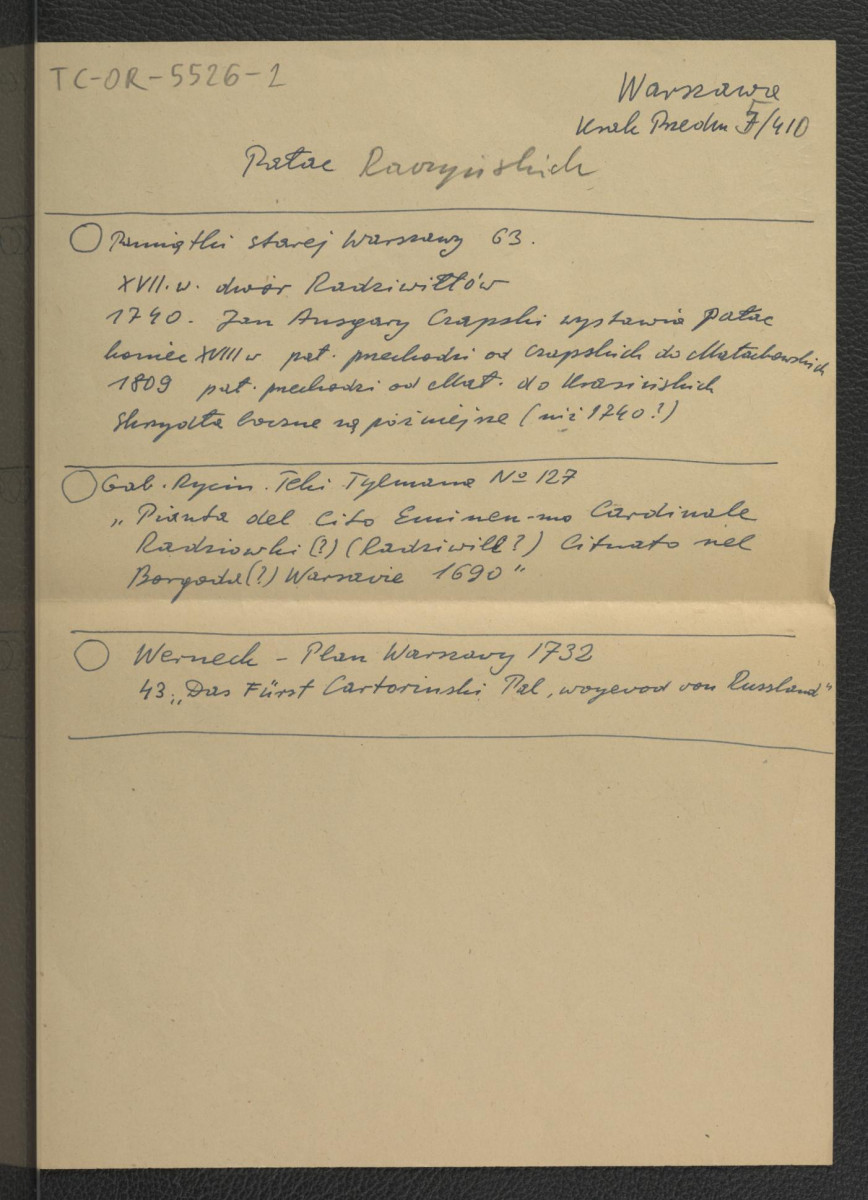 TC-OR-5526-1
Warszawa
Krak Przedm 5/410
Pałac Raczyńskich
Pamiątki starej Warszawy 63.
XVII.w. dwór Radziwiłłów
1740. Jan Ansgary Czapski wystawia pałac
koniec XVIII w pał. przechodzi od Czapskich do Małachowskich
1809 pał. przechodzi od Mał. do Krasińskich
Skrzydła boczne są późniejsze (niż 1740?)
Gab. Rycin. Teki Tylmana No 127
„Pianta del Cito Eminen-mo Cardinale
Radziowki (?) (Radziwill?) Cituato nel
Borgoda (?) Warsavie 1690"
Werneck - Plan Warszawy 1732
43. „Das Fürst Cartorinski Pal, woyevod von Russland"